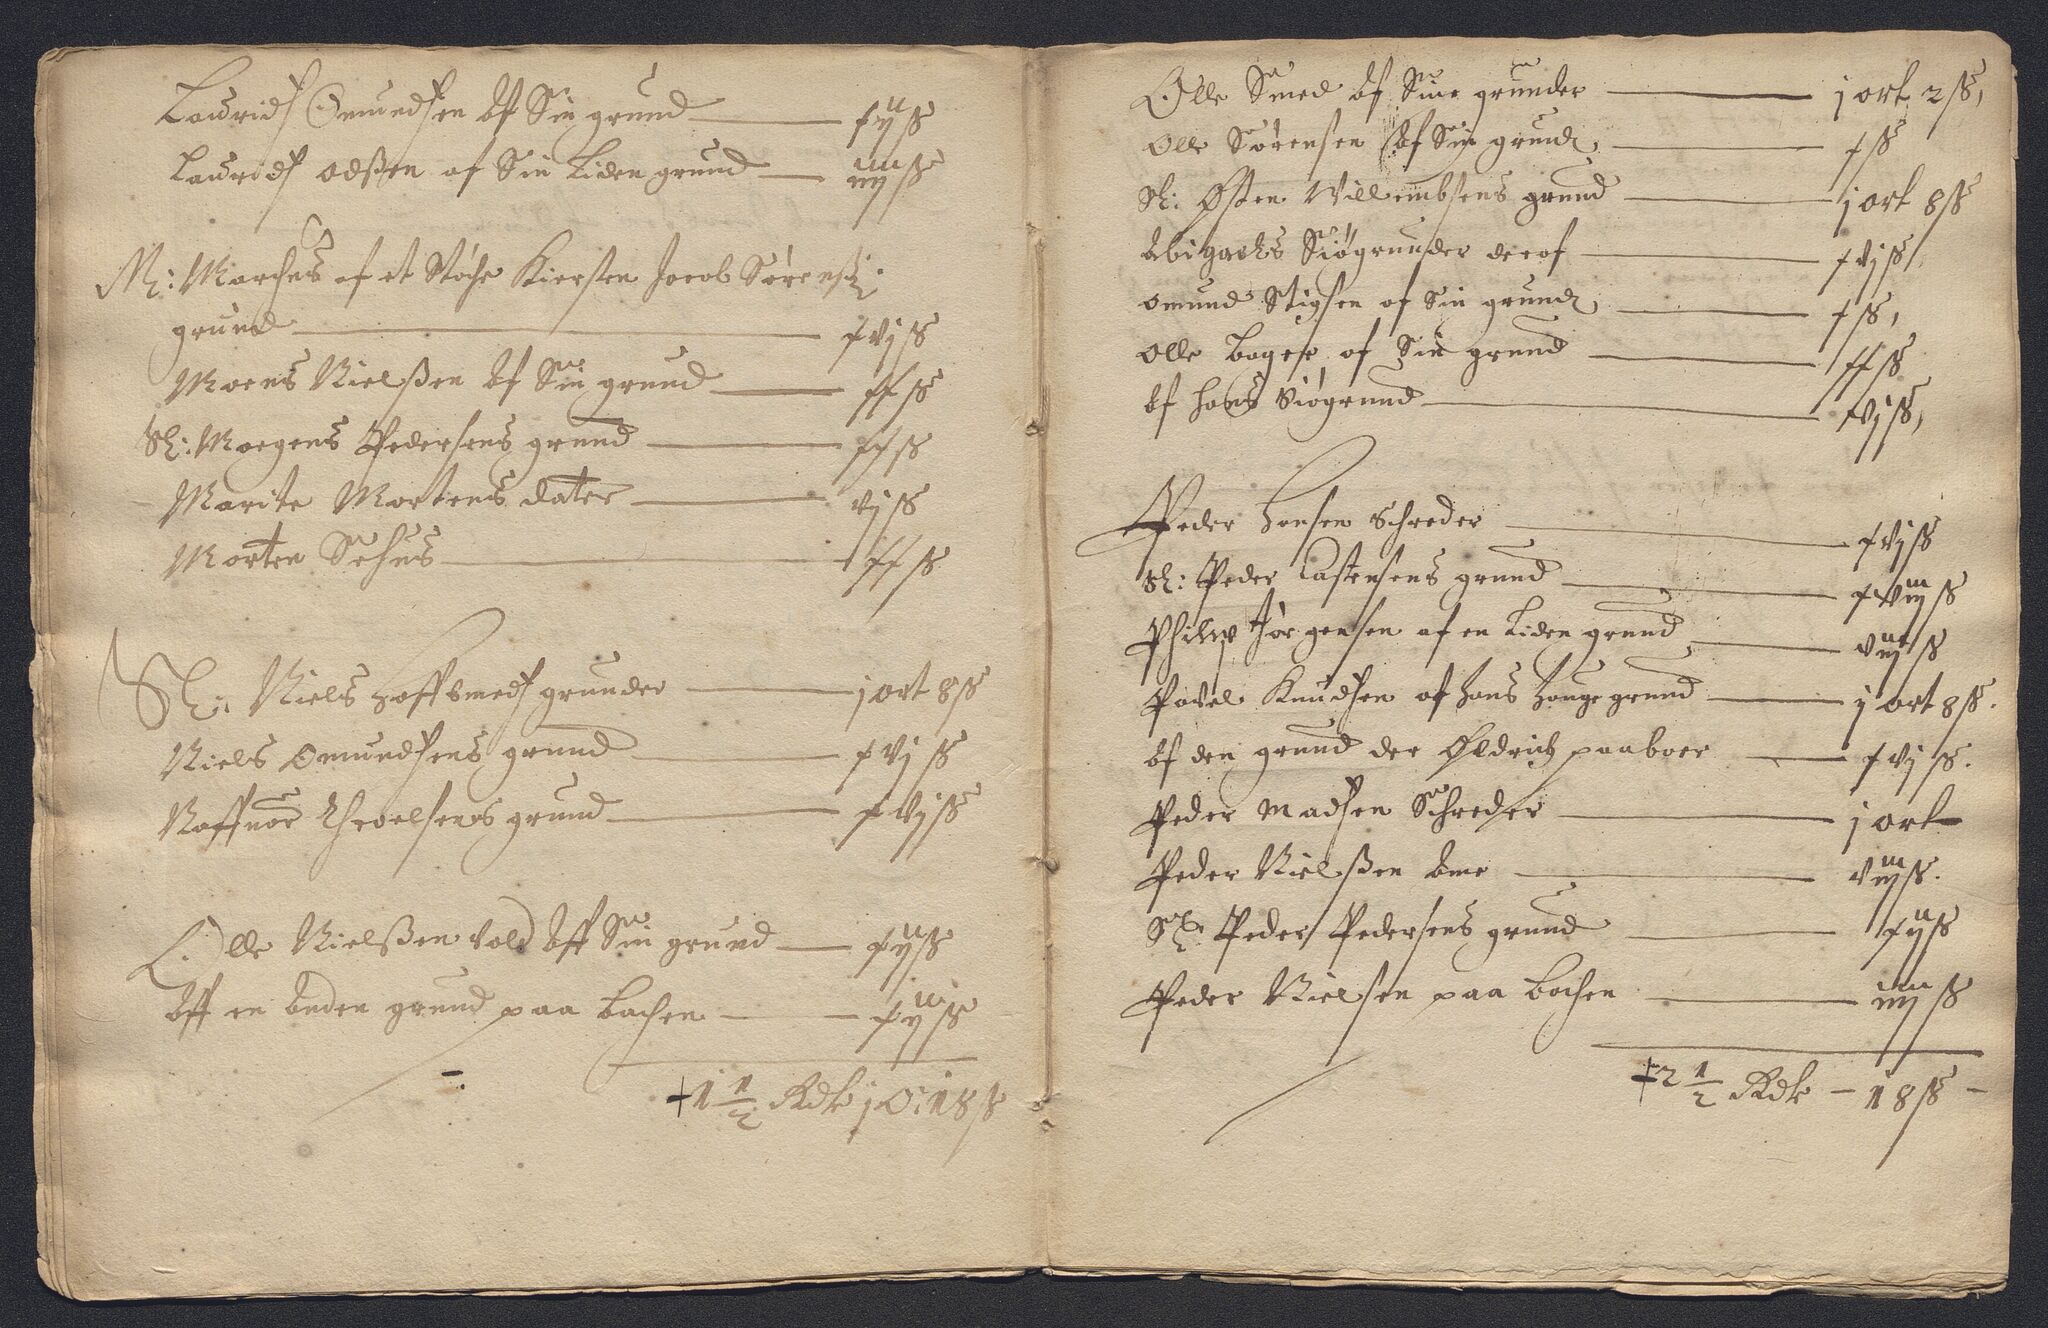 Lauridz Omundsen Af Sin grund — xij ß
Lauridz odßen af Sin Liden grund — iiij ß
M: Marchus af et Støche Kiersten Jacob Sørens:
grund — xvj ß
Moens Nielßen Af Sin grund — xx ß
Sl: Moegens Pedersens grund — xx ß
Marite Mortens dater — vj ß
Morten Sehus — xx ß
Sl: Niels hoffsmedz grunder — j ort 8 ß
Niels Omundsens grund — xvj ß
Raffnor grund — xvj ß
Olle Nielßen vold Aff Sin grund — xij ß
Aff en Anden grund paa Bachen — xij ß
+ 1 1/2 Rdr j O: 18 ß
Olle Smed Af Sine grunder — j ort 2 ß
Olle Sørensen Af Sin grund — x ß
Sl: Østen Willumbsens grund — j ort 8 ß
Siøgrunder der of — xvj ß
Omund Stigsen af Sin grund — x ß
Olle Bager af Sin grund — xx ß
Af hans Siøgrund — xvj ß
Peder hansen Schreder — xvj ß
Sl: Peder Castensens grund — xviij ß
Philip Jørgensen af en Liden grund — viij ß
Povel Knudsen af hans grund — j ort 8 ß.
Af den grund der Oldrich paaboer — xvj ß.
Peder Madsen Schreder — j ort
Peder Nielßen — viij ß.
Sl: Peder Pedersens grund — xij ß
Peder Nielsen paa Bachen — iiij ß
+ 2 1/2 Rdr — 18 ß —